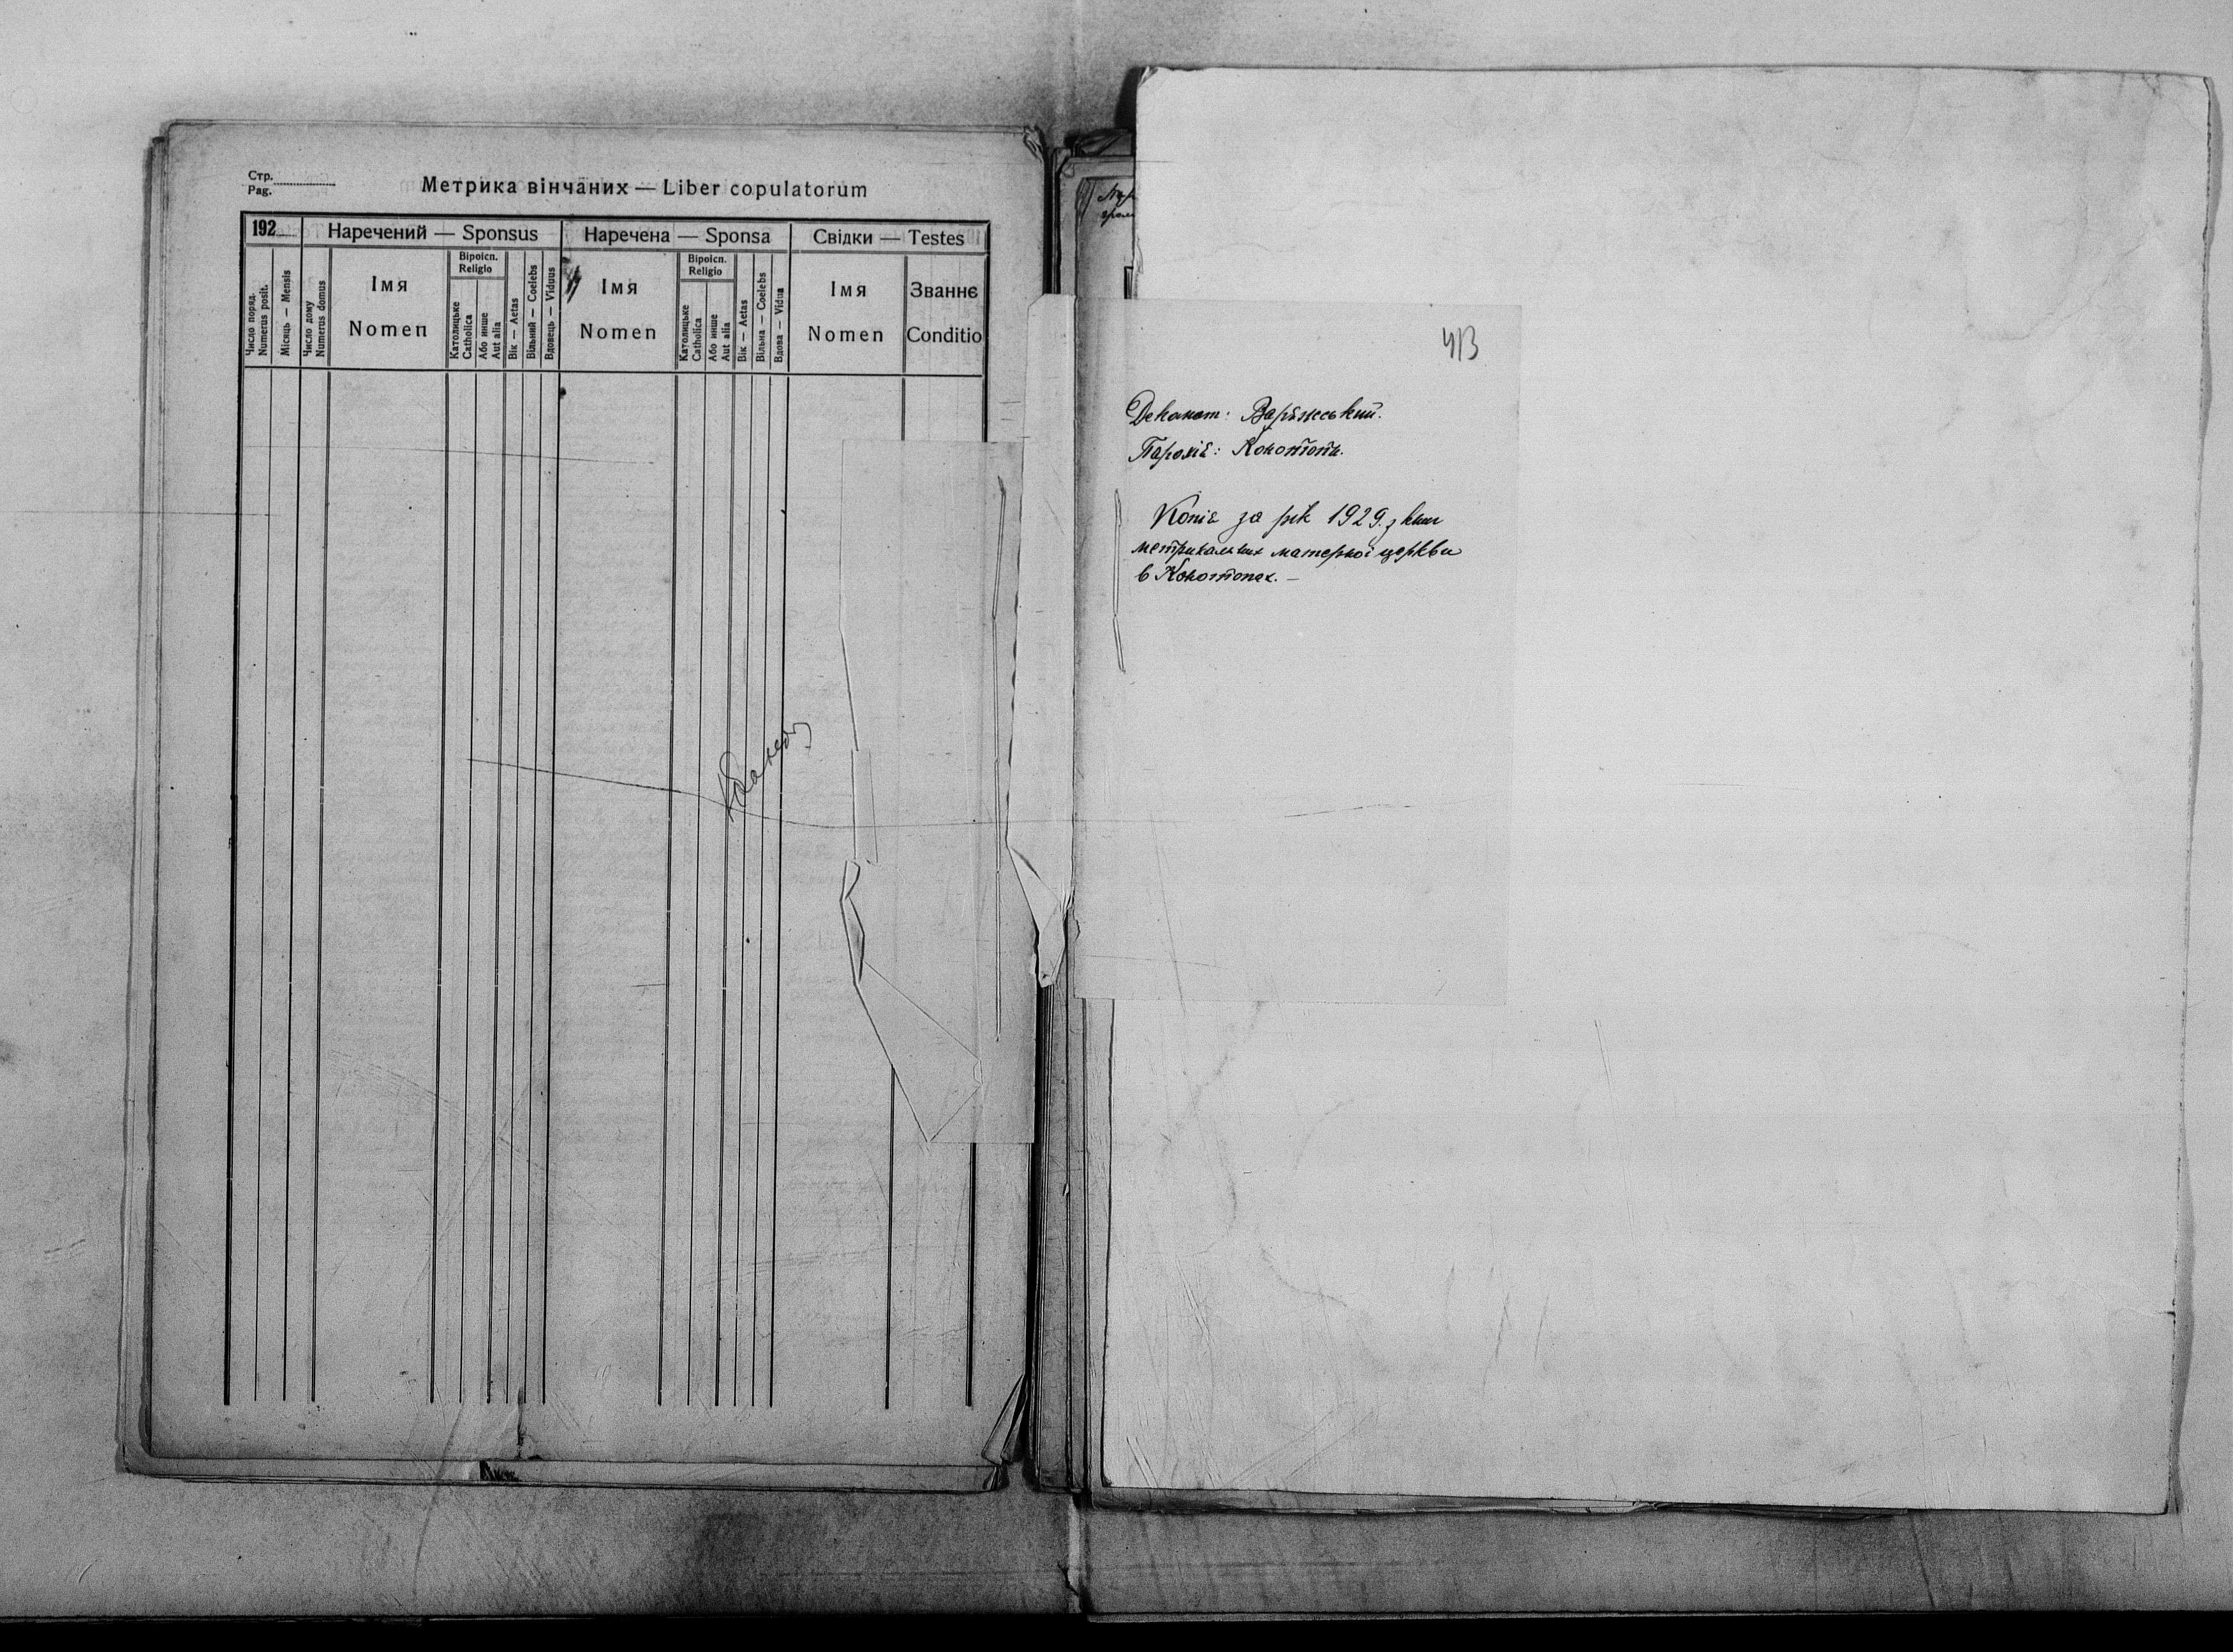 Стр.
Pag.
Метрика вінчаних — Liber copulatorum
192
Наречений — Sponsus
Наречена — Sponsa
Свідки — Testes
Число поряд.
Numerus posit.
Місяць — Mensis
Число дому
Numerus domus
Імя
Nomen
Віроісп.
Religio
Католицьке
Catholica
Або инше
Aut alia
Вік — Aetas
Вільний — Coelebs
Вдовець — Viduus
Імя
Nomen
Віроісп.
Religio
Католицьке
Catholica
Або инше
Aut alia
Вік — Aetas
Вільна — Coelebs
Вдова — Vidua
Імя
Nomen
Званнє
Conditio
413
Деканат: Варяжський.
Парохія:
Копія за рік 1929. з книг
метрикальних матерної церкви
в